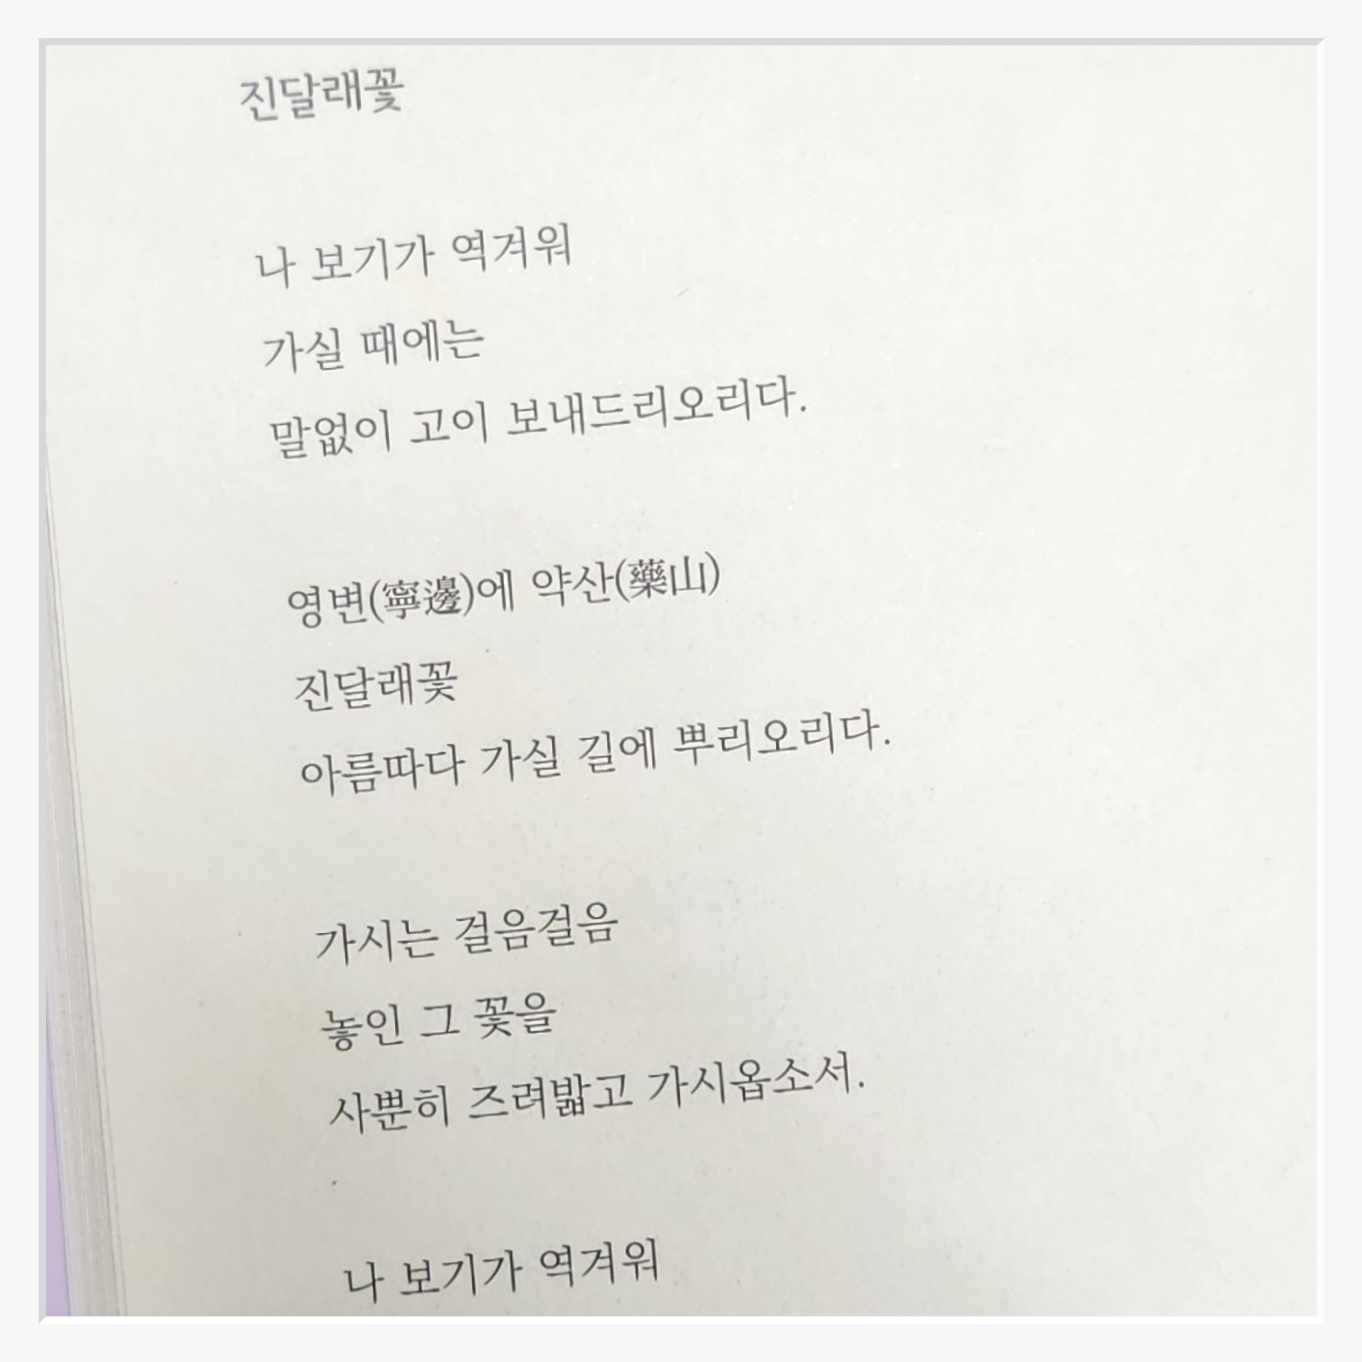 진달래꽃
나 보기가 역겨워
가실 때에는
말없이 고이 보내드리오리다.
영변(寧邊)에 약산(藥山)
진달래꽃
아름따다 가실 길에 뿌리오리다.
가시는 걸음걸음
놓인 그 꽃을
사뿐히 즈려밟고 가시옵소서.
나 보기가 역겨워